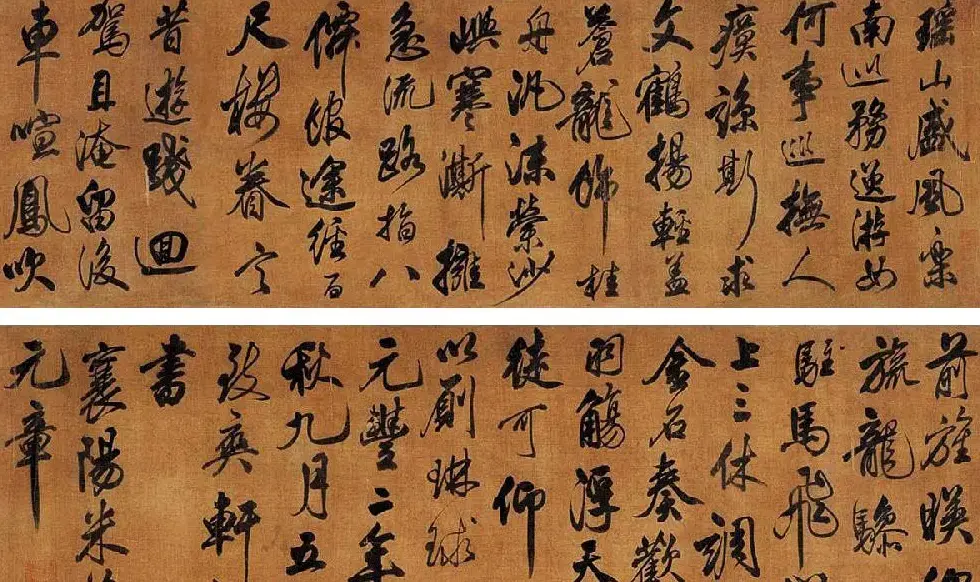 瑤山盛風栗
南巡務逸游如
何事巡撫人
瘼諒斯求
文鶴揚輕蓋
蒼龍飾桂
舟汎沫縈沙
嶼寒澌擁
急流路指八
僊彼途經百
尺樓眷言
昔遊踐迴
駕且淹留後
車喧鳳吹
前旌暎
旒龍驂
駐馬飛
上三休調
金石奏歡
羽觴浮天
徒可仰
以則琳球
元豐二年
秋九月五
致爽軒
書
襄陽米
元章